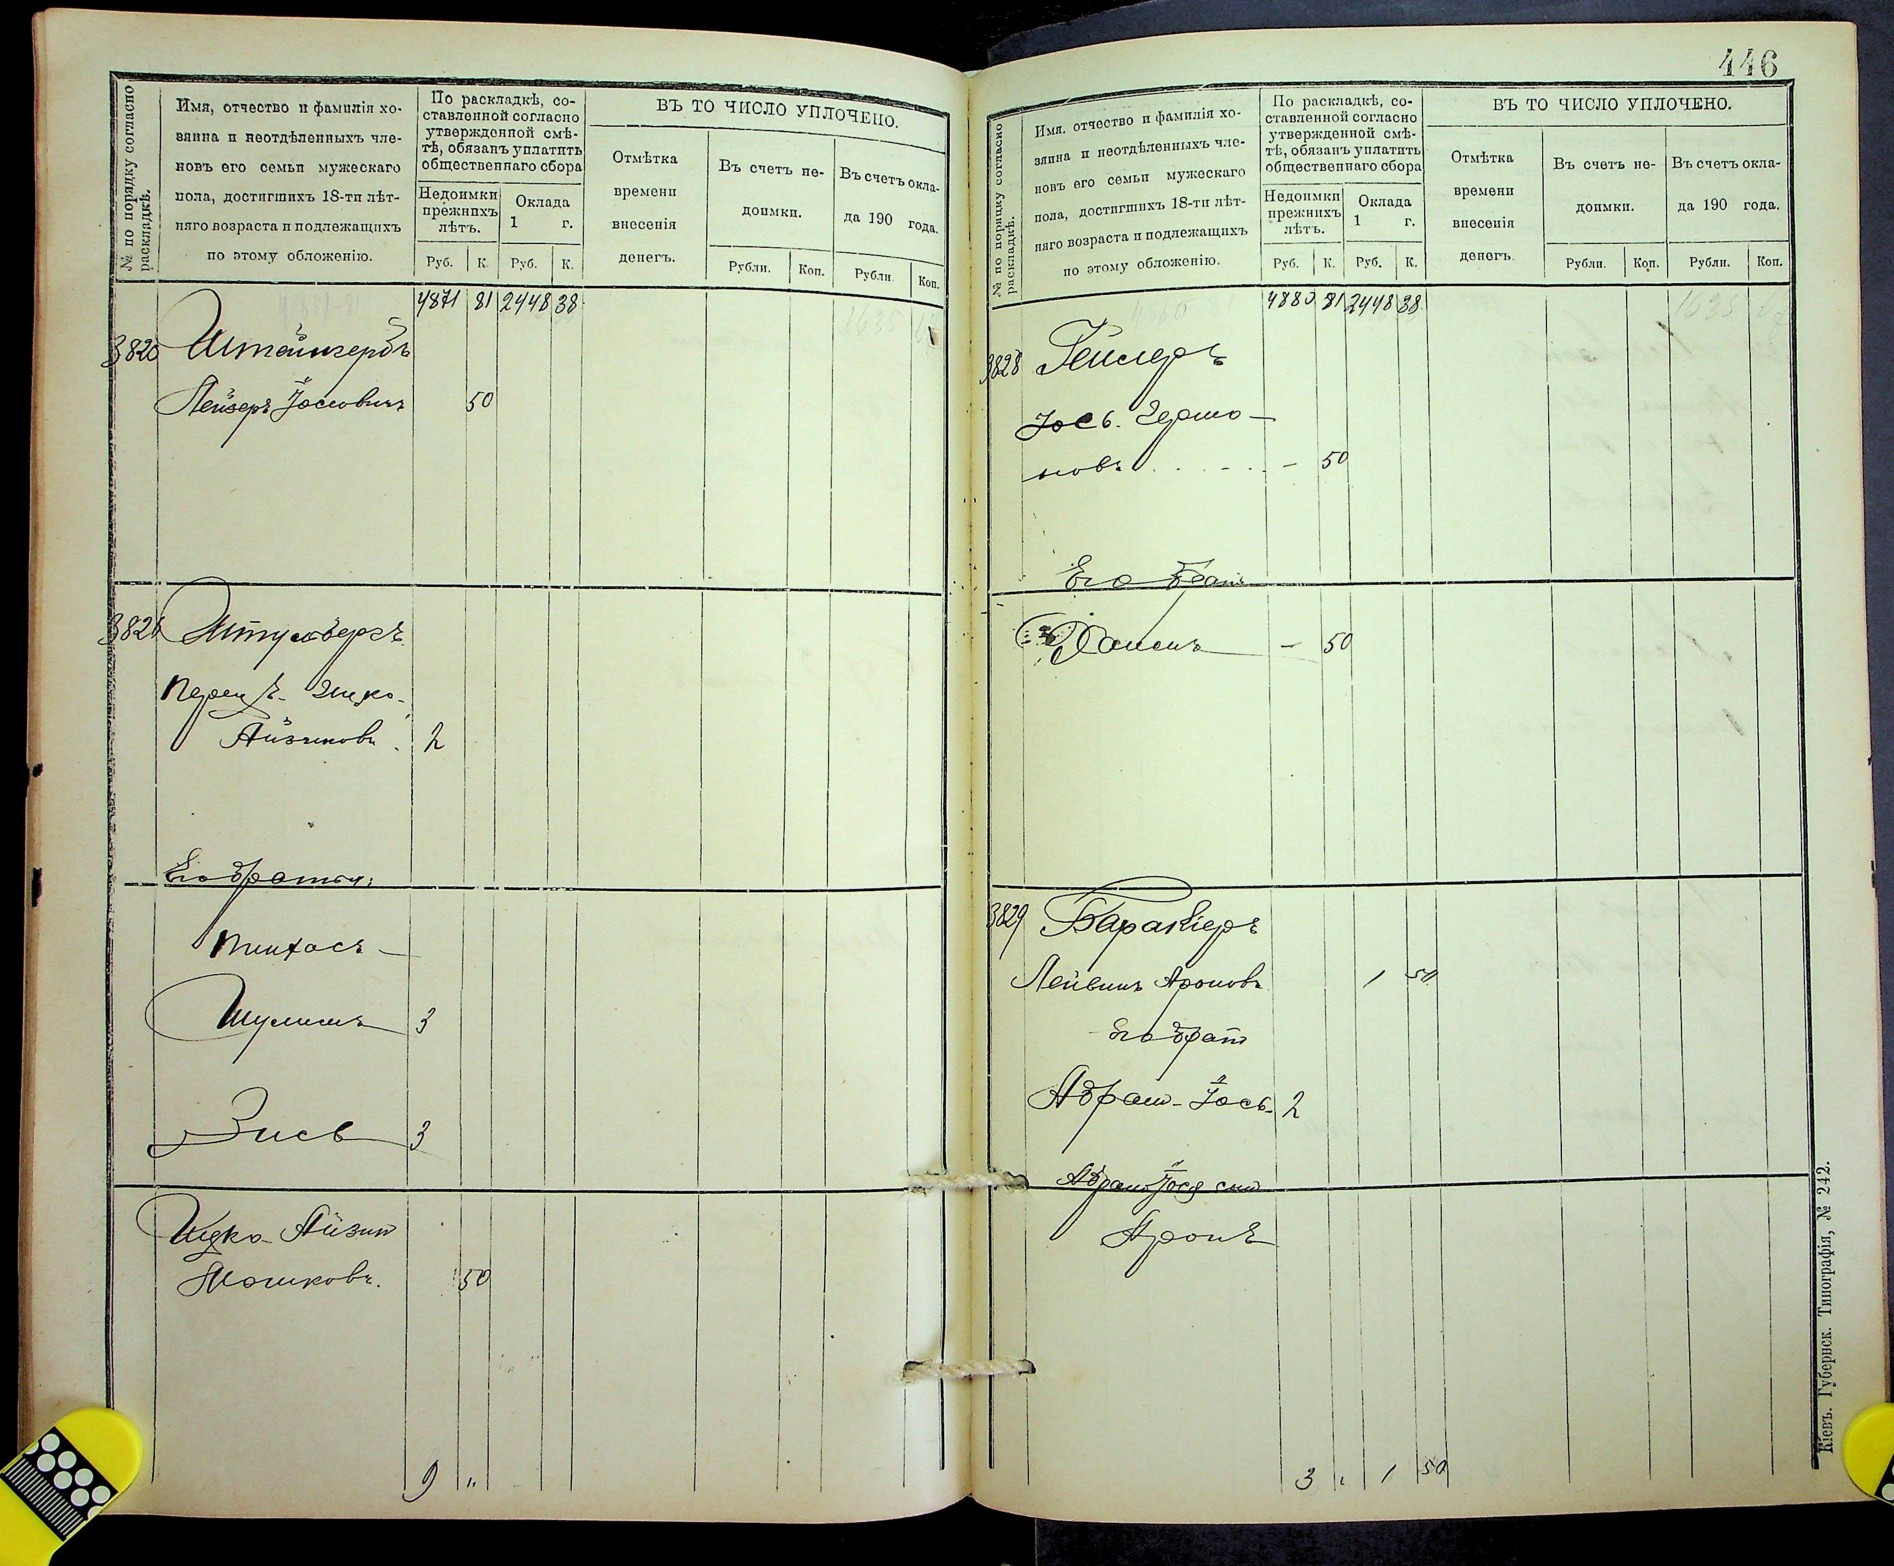 446
№ по порядку согласно раскладкѣ.
Имя, отчество и фамилія хо-
зяина и неотдѣленныхъ чле-
новъ его семьи мужескаго
пола, достигшихъ 18-ти лѣт-
няго возраста и подлежащихъ
по этому обложенію.
По раскладкѣ, со-
ставленной согласно
утвержденной смѣ-
тѣ, обязанъ уплатить
общественнаго сбора
Недоимки
прежнихъ
лѣтъ.
Оклада
1 г.
Руб. К. Руб. К.
ВЪ ТО ЧИСЛО УПЛОЧЕНО.
Отмѣтка
времени
внесенія
денегъ.
Въ счетъ не-
доимки.
Рубли. Коп.
Въ счетъ окла-
да 190 года.
Рубли. Коп.
4871 81 2448 38
3820 Штейнгербъ
Лейзеръ Іосіовичъ 50
Штульбергъ
Перецъ Ицко-
Айзиковъ . 2
Его братья:
Пинхасъ —
Шулимъ 3
Зись 3
Ицко-Айзик
Мошковъ. 50
9 "
№ по порядку согласно раскладкѣ.
Имя, отчество и фамилія хо-
зяина и неотдѣленныхъ чле-
новъ его семьи мужескаго
пола, достигшихъ 18-ти лѣт-
няго возраста и подлежащихъ
по этому обложенію.
По раскладкѣ, со-
ставленной согласно
утвержденной смѣ-
тѣ, обязанъ уплатить
общественнаго сбора
Недоимки
прежнихъ
лѣтъ.
Оклада
1 г.
Руб. К. Руб. К.
ВЪ ТО ЧИСЛО УПЛОЧЕНО.
Отмѣтка
времени
внесенія
денегъ.
Въ счетъ не-
доимки.
Рубли. Коп.
Въ счетъ окла-
да 190 года.
Рубли. Коп.
4880 81 2448 38
3828 Гейслеръ
Іось Гершо-
новъ . . . . — 50
Его братъ
Хаимъ — 50
3829 Баракіеръ
Лейвикъ Ароновъ 1 50
Его брат
Абрам-Іось 2
Абрам-Іося сын
Аронъ
3 " 1 50
Кіевъ. Губернск. Типографія, № 242.